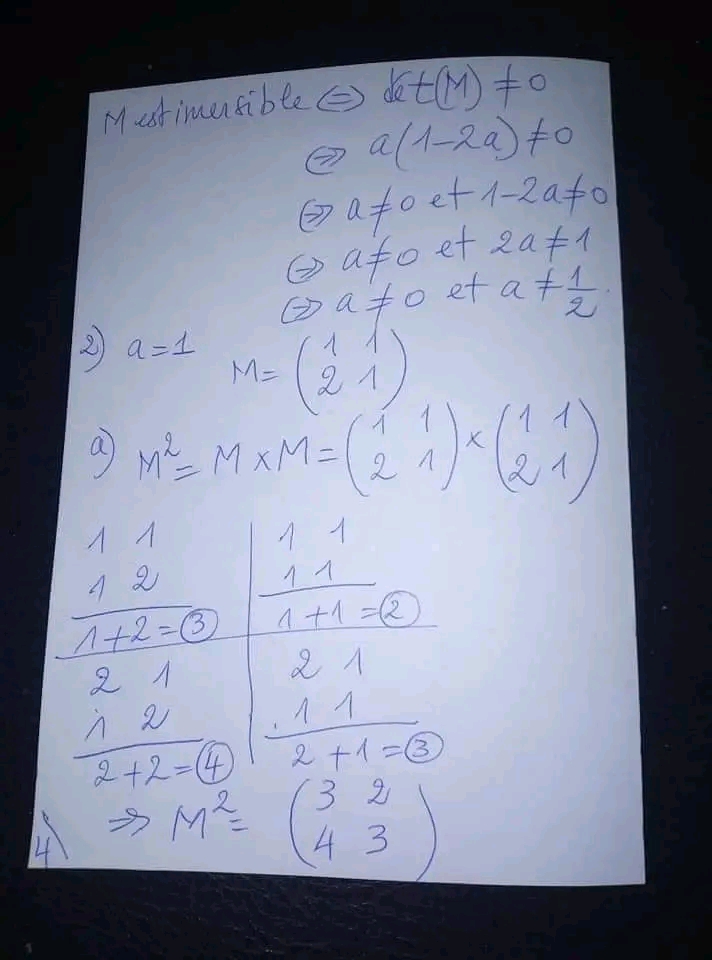 M est inversible ⇔ det(M) ≠ 0
⇔ a(1-2a) ≠ 0
⇔ a ≠ 0 et 1-2a ≠ 0
⇔ a ≠ 0 et 2a ≠ 1
⇔ a ≠ 0 et a ≠ 1/2.
2) a = 1 M = (1 1 / 2 1)
a) M² = M × M = (1 1 / 2 1) × (1 1 / 2 1)
1 1 | 1 1
1 2 | 1 1
1+2 = 3 | 1+1 = 2
2 1 | 2 1
1 2 | 1 1
2+2 = 4 | 2+1 = 3
⇒ M² = (3 2 / 4 3)
4)